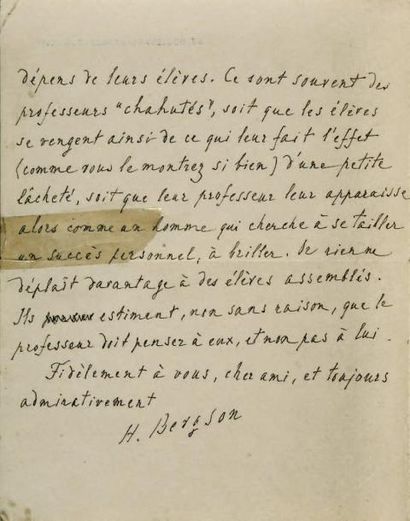 dépens de leurs élèves. Ce sont souvent des
professeurs "chahutés", soit que les élèves
se vengent ainsi de ce qui leur fait l'effet
(comme vous le montrez si bien) d'une petite
lâcheté, soit que leur professeur leur apparaisse
alors comme un homme qui cherche à se tailler
un succès personnel, à briller. Or rien ne
déplaît davantage à des élèves assemblés.
Ils estiment, non sans raison, que le
professeur doit penser à eux, et non pas à lui.
Fidèlement à vous, cher ami, et toujours
admirativement
H. Bergson